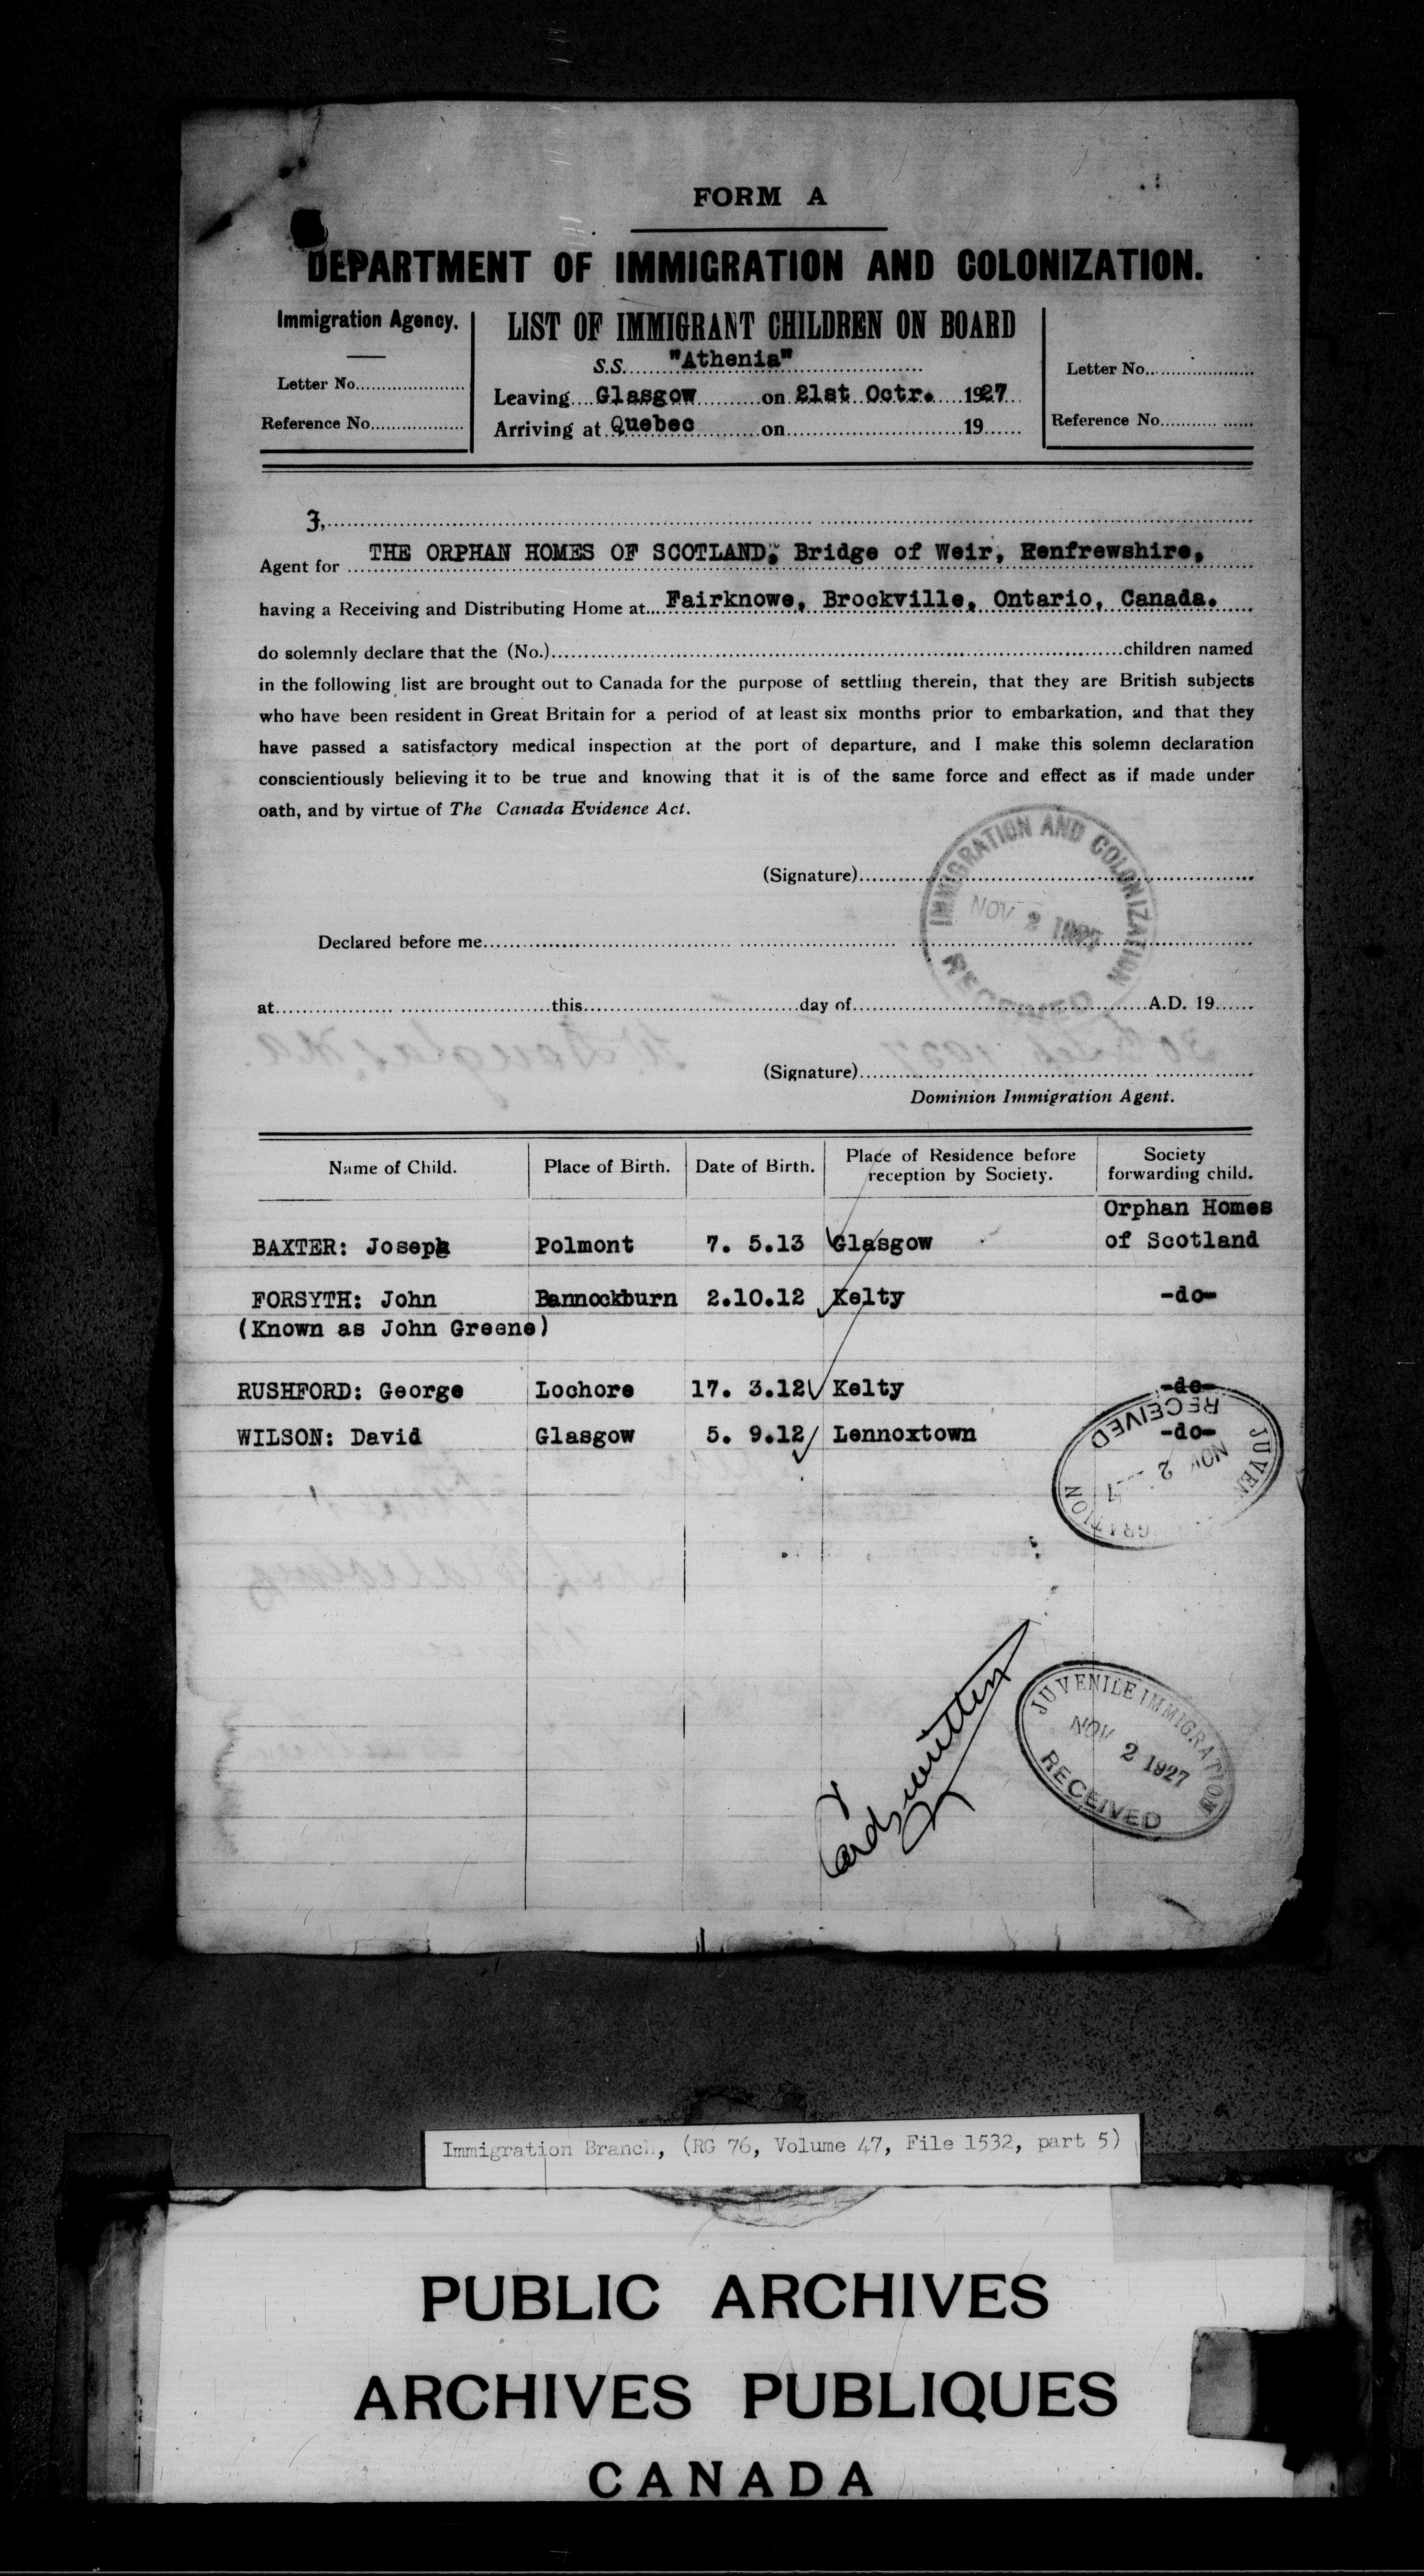 FORM A
DEPARTMENT OF IMMIGRATION AND COLONIZATION.
Immigration Agency.
Letter No....................
Reference No.................
LIST OF IMMIGRANT CHILDREN ON BOARD
S.S. "Athenia"
Leaving Glasgow on 21st Octr. 1927
Arriving at Quebec on 19
Letter No....................
Reference No.................
I,
Agent for THE ORPHAN HOMES OF SCOTLAND, Bridge of Weir, Renfrewshire,
having a Receiving and Distributing Home at Fairknowe, Brockville, Ontario, Canada.
do solemnly declare that the (No.) children named
in the following list are brought out to Canada for the purpose of settling therein, that they are British subjects
who have been resident in Great Britain for a period of at least six months prior to embarkation, and that they
have passed a satisfactory medical inspection at the port of departure, and I make this solemn declaration
conscientiously believing it to be true and knowing that it is of the same force and effect as if made under
oath, and by virtue of The Canada Evidence Act.
(Signature)
IMMIGRATION AND COLONIZATION
NOV 2 1927
RECEIVED
Declared before me
at this day of A.D. 19
(Signature)
Dominion Immigration Agent.
Name of Child. Place of Birth. Date of Birth. Place of Residence before reception by Society. Society forwarding child.
Orphan Homes
BAXTER: Joseph Polmont 7. 5.13 Glasgow of Scotland
FORSYTH: John Bannockburn 2.10.12 Kelty -do-
(Known as John Greene)
RUSHFORD: George Lochore 17. 3.12 Kelty -do-
WILSON: David Glasgow 5. 9.12 Lennoxtown -do-
RECEIVED
NOV 2
Cards written
JUVENILE IMMIGRATION
NOV 2 1927
RECEIVED
Immigration Branch, (RG 76, Volume 47, File 1532, part 5)
PUBLIC ARCHIVES
ARCHIVES PUBLIQUES
CANADA